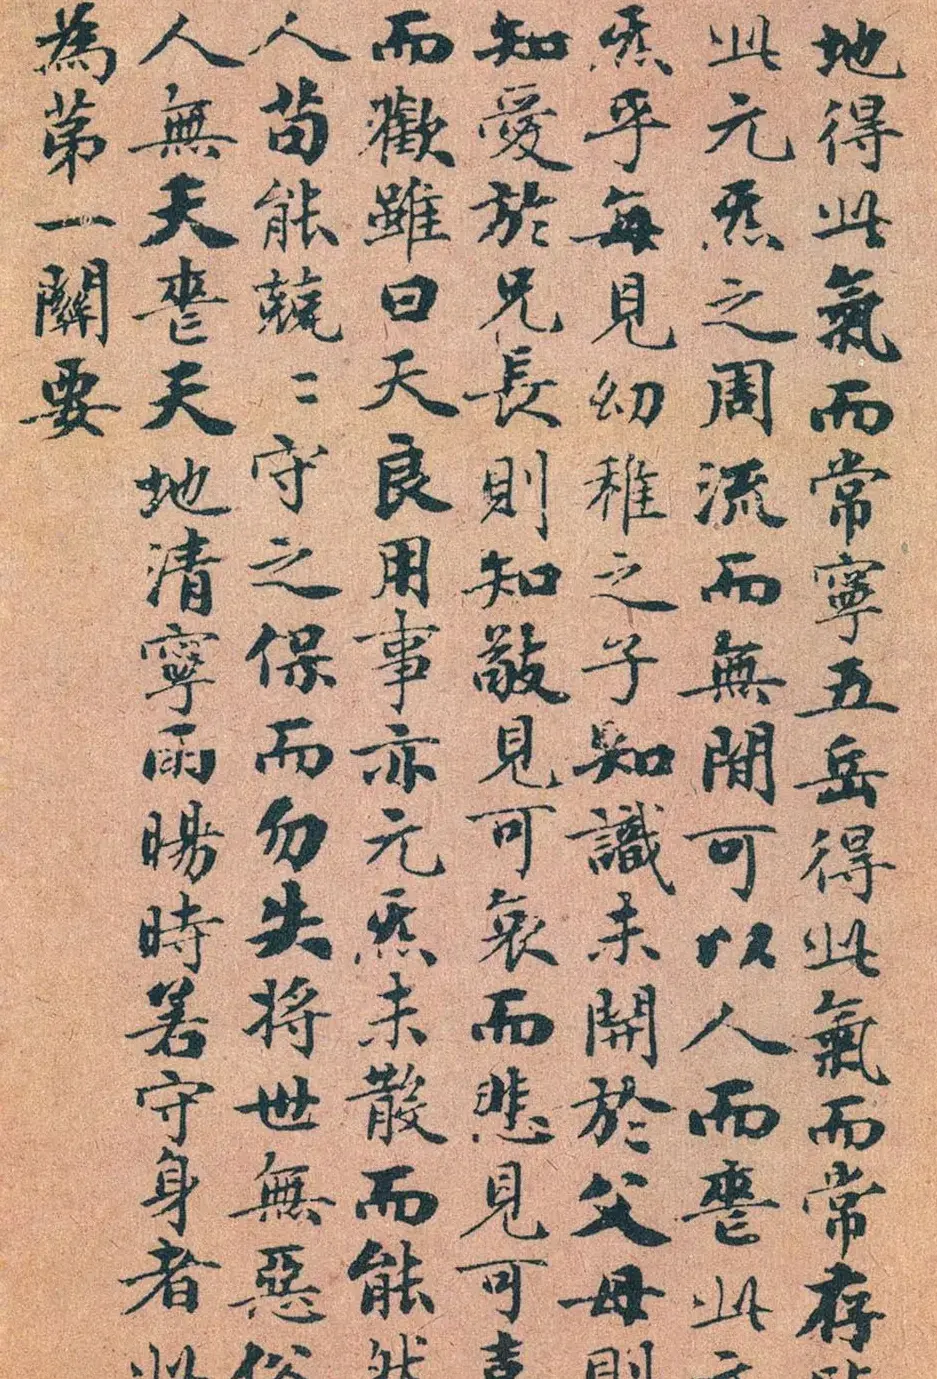 地得此氣而常寧五岳得此氣而常存
此元炁之周流而無閒可以人而喪此元
炁乎每見幼稚之子知識未開於父母則
知愛於兄長則知敬見可哀而悲見可喜
而歡雖曰天良用事亦元炁未散而能然
人苟能兢〻守之保而勿失將世無惡俗
人無夭喪天地清寧雨暘時若守身者此
為第一關要